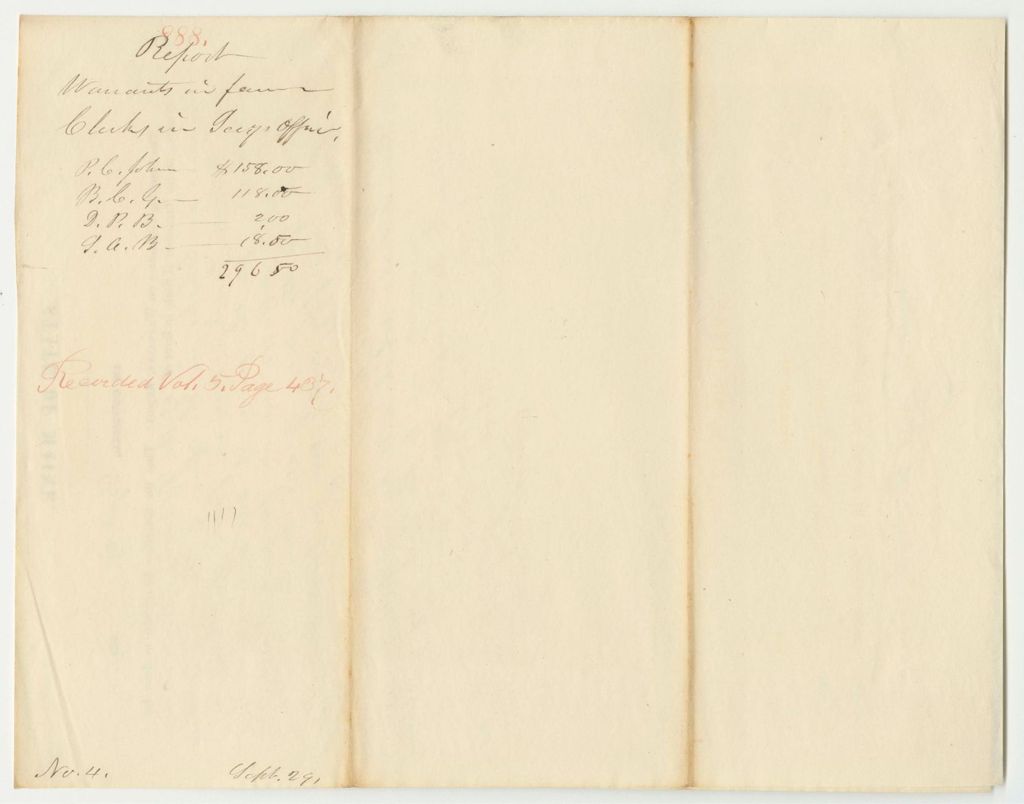 888.
Report
Warrants in favor
Clerks in Secys Office,
P. C. John $158.00
B. C. G. 118.00
D. P. B. 200
S. A. B 18.50
296 50
Recorded Vol. 5. Page 437.
No. 4. Sept. 29,